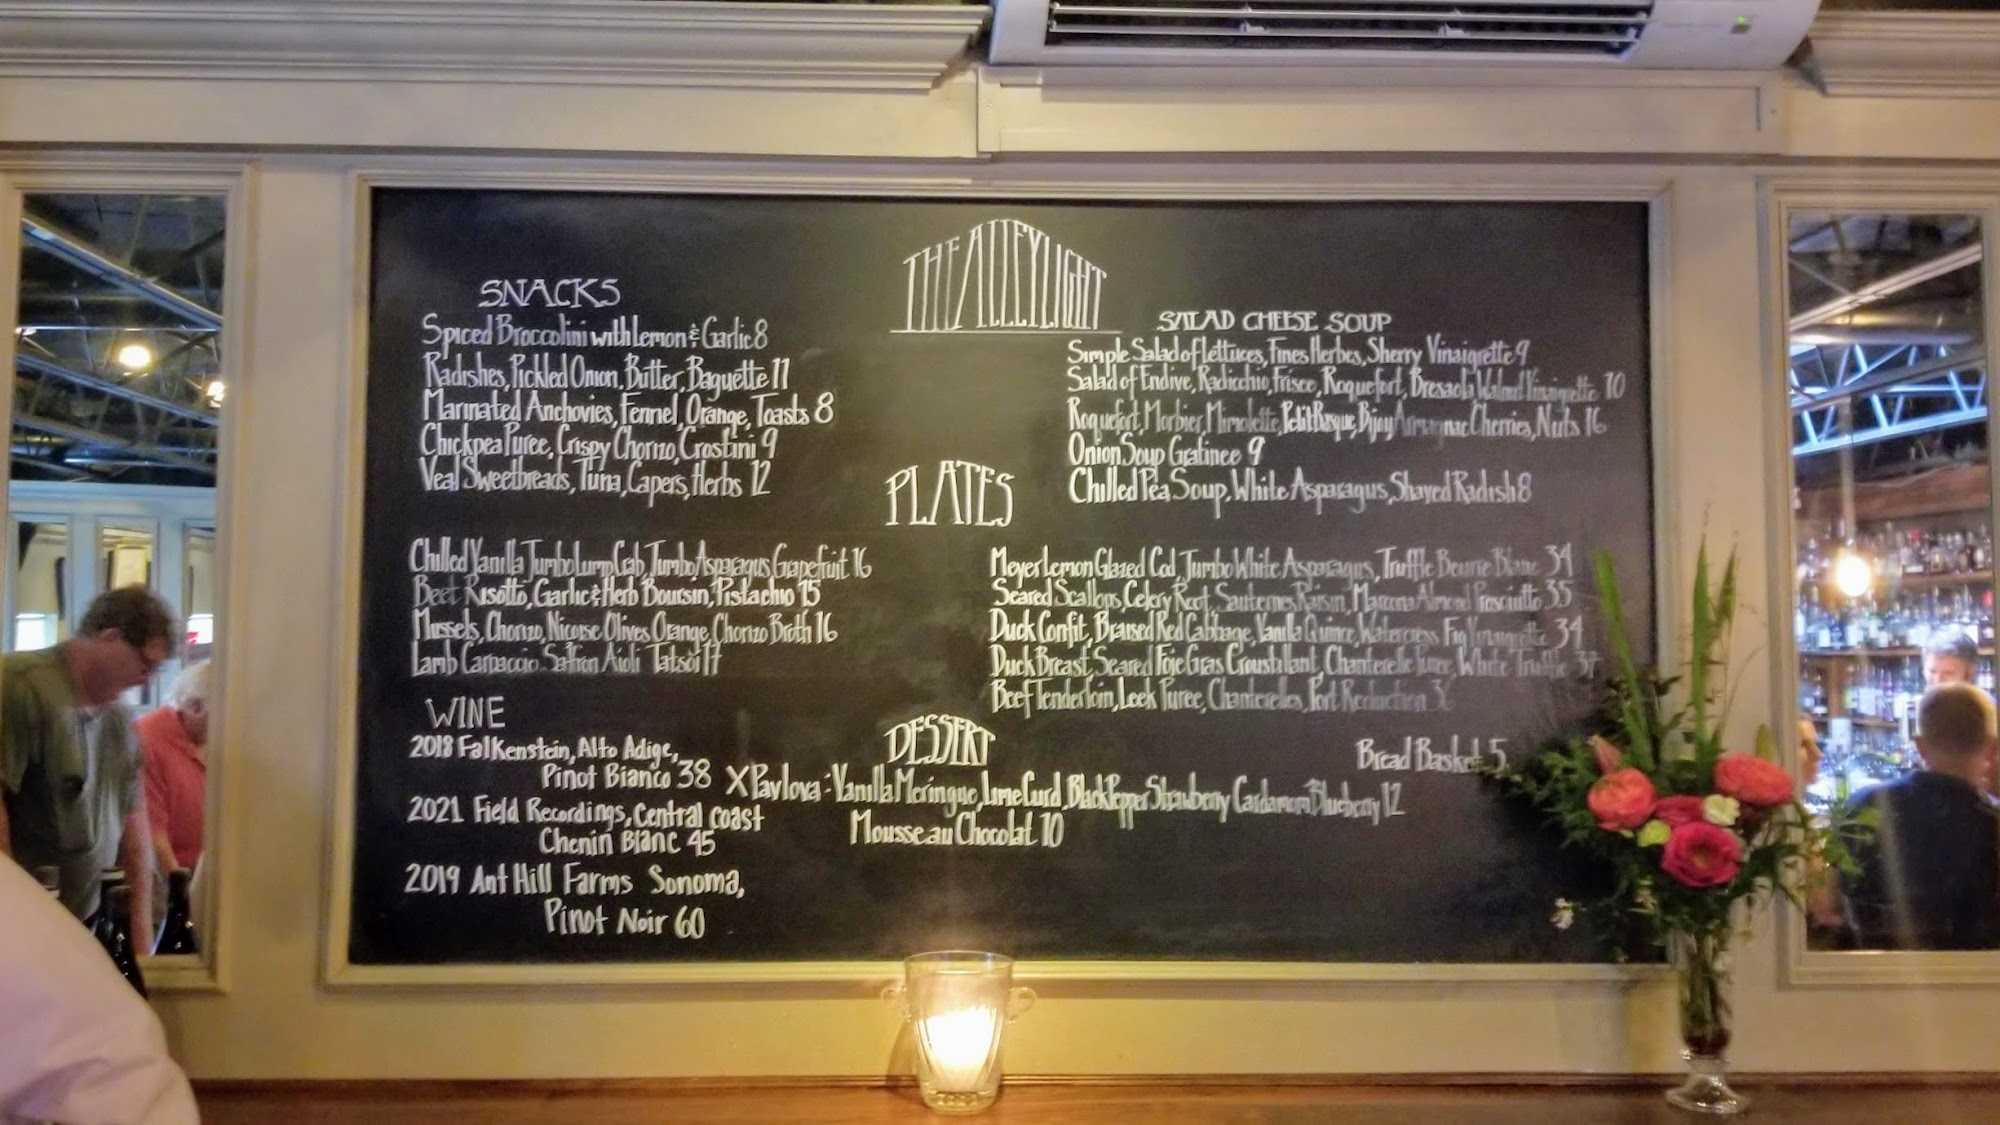 THE ALLEY LIGHT
SNACKS
Spiced Broccolini with Lemon & Garlic 8
Radishes, Pickled Onion, Butter, Baguette 11
Marinated Anchovies, Fennel, Orange, Toasts 8
Chickpea Puree, Crispy Chorizo, Crostini 9
Veal Sweetbreads, Tuna, Capers, Herbs 12
SALAD CHEESE SOUP
Simple Salad of lettuces, Fines Herbes, Sherry Vinaigrette 9
Salad of Endive, Radicchio, Frisee, Roquefort, Bresaola Walnut Vinaigrette 10
Roquefort, Morbier, Mimolette, Petit Basque, Bijou Armagnac Cherries, Nuts 16
Onion Soup Gratinee 9
Chilled Pea Soup, White Asparagus, Shaved Radish 8
PLATES
Chilled Vanilla Jumbo Lump Crab, Jumbo Asparagus, Grapefruit 16
Beet Risotto, Garlic & Herb Boursin, Pistachio 15
Mussels, Chorizo, Nicoise Olives, Orange, Chorizo Broth 16
Lamb Carpaccio Saffron Aioli Tatsoi 17
Meyer Lemon Glazed Cod, Jumbo White Asparagus, Truffle Beurre Blanc 34
Seared Scallops, Celery Root, Sauternes Raisin, Marcona Almond Prosciutto 35
Duck Confit, Braised Red Cabbage, Vanilla Quince, Watercress Fig Vinaigrette 34
Duck Breast, Seared Foie Gras Croustillant, Chanterelle Puree, White Truffle 37
Beef Tenderloin, Leek Puree, Chanterelles, Port Reduction
WINE
2018 Falkenstein, Alto Adige,
Pinot Bianco 38
2021 Field Recordings, Central coast
Chenin Blanc 45
2019 Ant Hill Farms Sonoma,
Pinot Noir 60
DESSERT
X Pavlova - Vanilla Meringue, Lime Curd, Black Pepper Strawberry Cardamom Blueberry 12
Mousse au Chocolat 10
Bread Basket 5